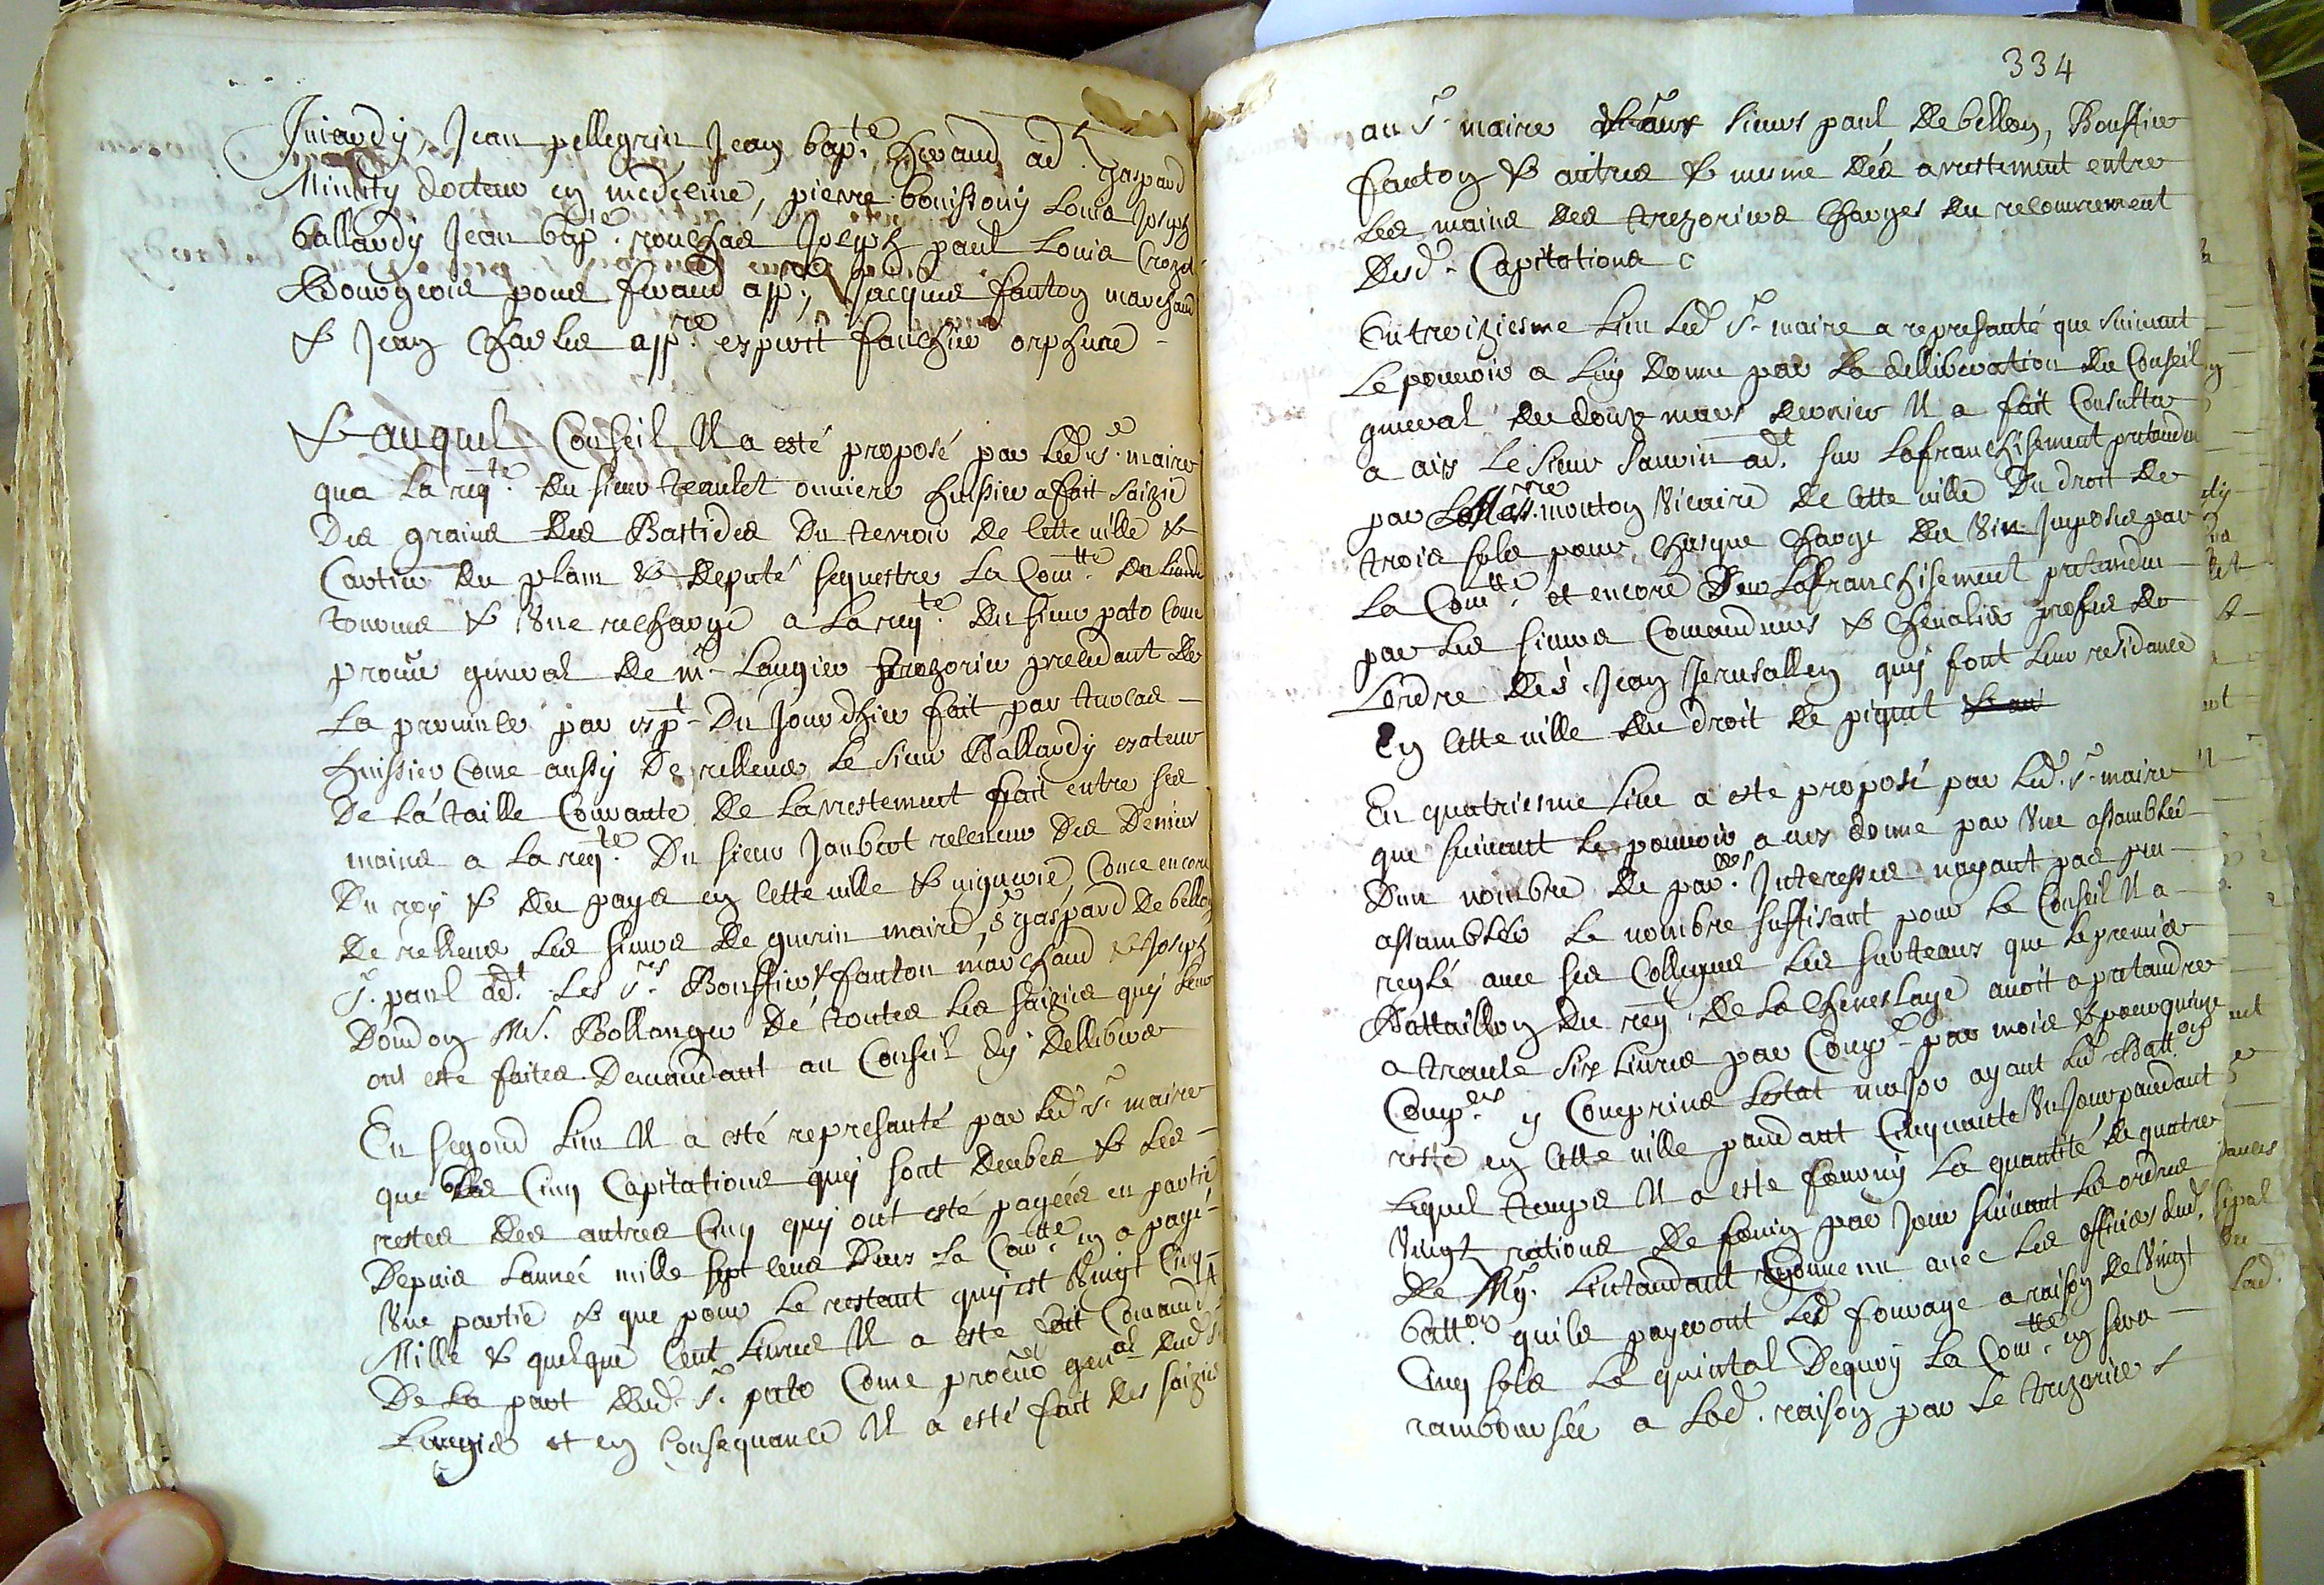 Jean pellegrin Jean bap.te giraud ad.t gaspard
Minuty docteur en medecine, pierre bouissony Louis Joseph
ballardy Jean bap.te rouchas Joseph paul Louis Crozet
Bourgeois pons giraud app.re Jacques fanton marchand
& Jean Charles app.re esprit fauchier orphevre
& auquel Conseil Il a esté proposé par led. s.r maire
qua la req.te du sieur teaulet ouviere huissier a fait saizie
des grains des Bastides du terroir de cette ville &
Cartier du plan & deputé sequestre la Com.tté de
& Une recharge a la req.te du sieur pato Come
procur general de m.e Laugier trezorier precedant de
la province par exp.t du Jour dhier fait par
huissier Come aussy de rellever le sieur Ballardy exateur
de la taille Courante de larrestement fait entre ses
mains a la req.te du sieur Jaubert receveur des deniers
du roy & du pays en cette ville & viguerie, Come encore
de rellever les sieurs de guerin maire, s.r gaspard de bellon
s.r paul ad.t les s.rs Bouffier & fanton marchand & Joseph
Dondon M.e Bollanger de toutes les saizies quy leur
ont esté faites demandant au Conseil dy dellibérer
En segond lieu Il a esté represanté par led. s.r maire
que des Cinq Capitations quy sont deubes & les
restes des autres Cinq quy ont esté payées en partie
depuis lannée mille sept cens deux la Com.tté en a payé
Une partie & que pour le restant quy est Vingt Cinq
Mille & quelque Cent Livres Il a esté fait Comand.t
de la part dud. s.r pato Come procur gen.al dud. s.r
Laugier et en Consequance Il a esté fait des saizies
334
au s.r maire sieurs paul de bellon, Bouffier
fanton & autres & mesme des arrestement entre
les mains des trezoriers Charges du recouvrement
desd. Capitations
En troiziesme lieu led. s.r maire a represanté que suivant
le pouvoir a luy donne par la dellibération du Conseil
general du douze mars dernier Il a fait Consulter
a aix le sieur Sauvin ad.t sur lafranchisement pretandu
par Messire mouton Vicaire de cette ville du droit de
trois sols pour chasque charge du Vin Imposés par
la Com.tté et encore sur lafranchisement pretandu
par les sieurs Comandeurs & chevalier profes de
Lordre de S. Jean Jerusallem quy font leur residance
en cette ville du droit de piquet
En quatriesme lieu a esté proposé par led. s.r maire
que suivant le pouvoir a eux donné par Une assamblée
Dun nombre de par.ers Interesses nayant pas peu
assambler le nombre suffisant pour le Conseil Il a
reglé avec ses Collegues les surteaux que le premier
Battaillon du reg.t de la Cheneslaye avoit a pretandre
a trante six livres par Comp.e par mois & pour quinze
Comp.es y Comprins lestat major ayant led. Batt.on
resté en cette ville pandant Cinquante Un Jour pandant
lequel temps Il a esté fourny la quantité de quatre
Vingt rations de fouin par Jour suivant les ordres
de Mgr. Lintandant Convenu avec les officiers dud.
batt.on quils payeront led. fourage a raison de Vingt
Cinq sols le quintal dequoy la Com.tté en sera
rambourcée a lad. raison par le trezorier